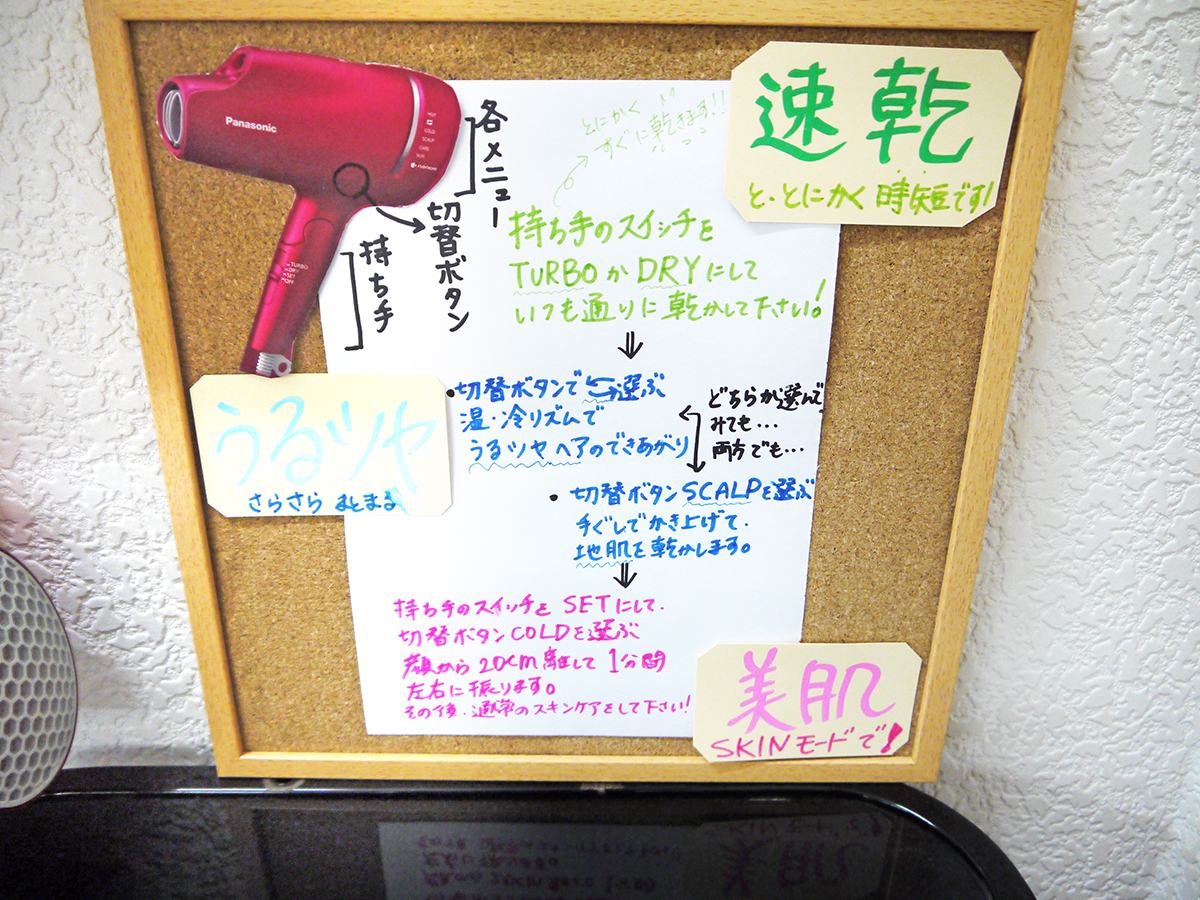 Panasonic
HOT
COLD
SCALP
CARE
SKIN
TURBO
DRY
SET
OFF
各メニュー
切替ボタン
持ち手
速乾
と・とにかく時短です!
とにかく
すぐに乾きます!!
持ち手のスイッチを
TURBOかDRYにして
いつも通りに乾かして下さい!
うるツヤ
さらさら まとまる
・切替ボタンで⇆選ぶ
温・冷リズムで
うるツヤヘアのできあがり
どちらか選んで
みても…
両方でも…
・切替ボタンSCALPを選ぶ
手ぐしでかき上げて、
地肌を乾かします。
持ち手のスイッチをSETにして、
切替ボタンCOLDを選ぶ
顔から20cm離して1分間
左右に振ります。
その後、通常のスキンケアをして下さい!
美肌
SKINモードで!